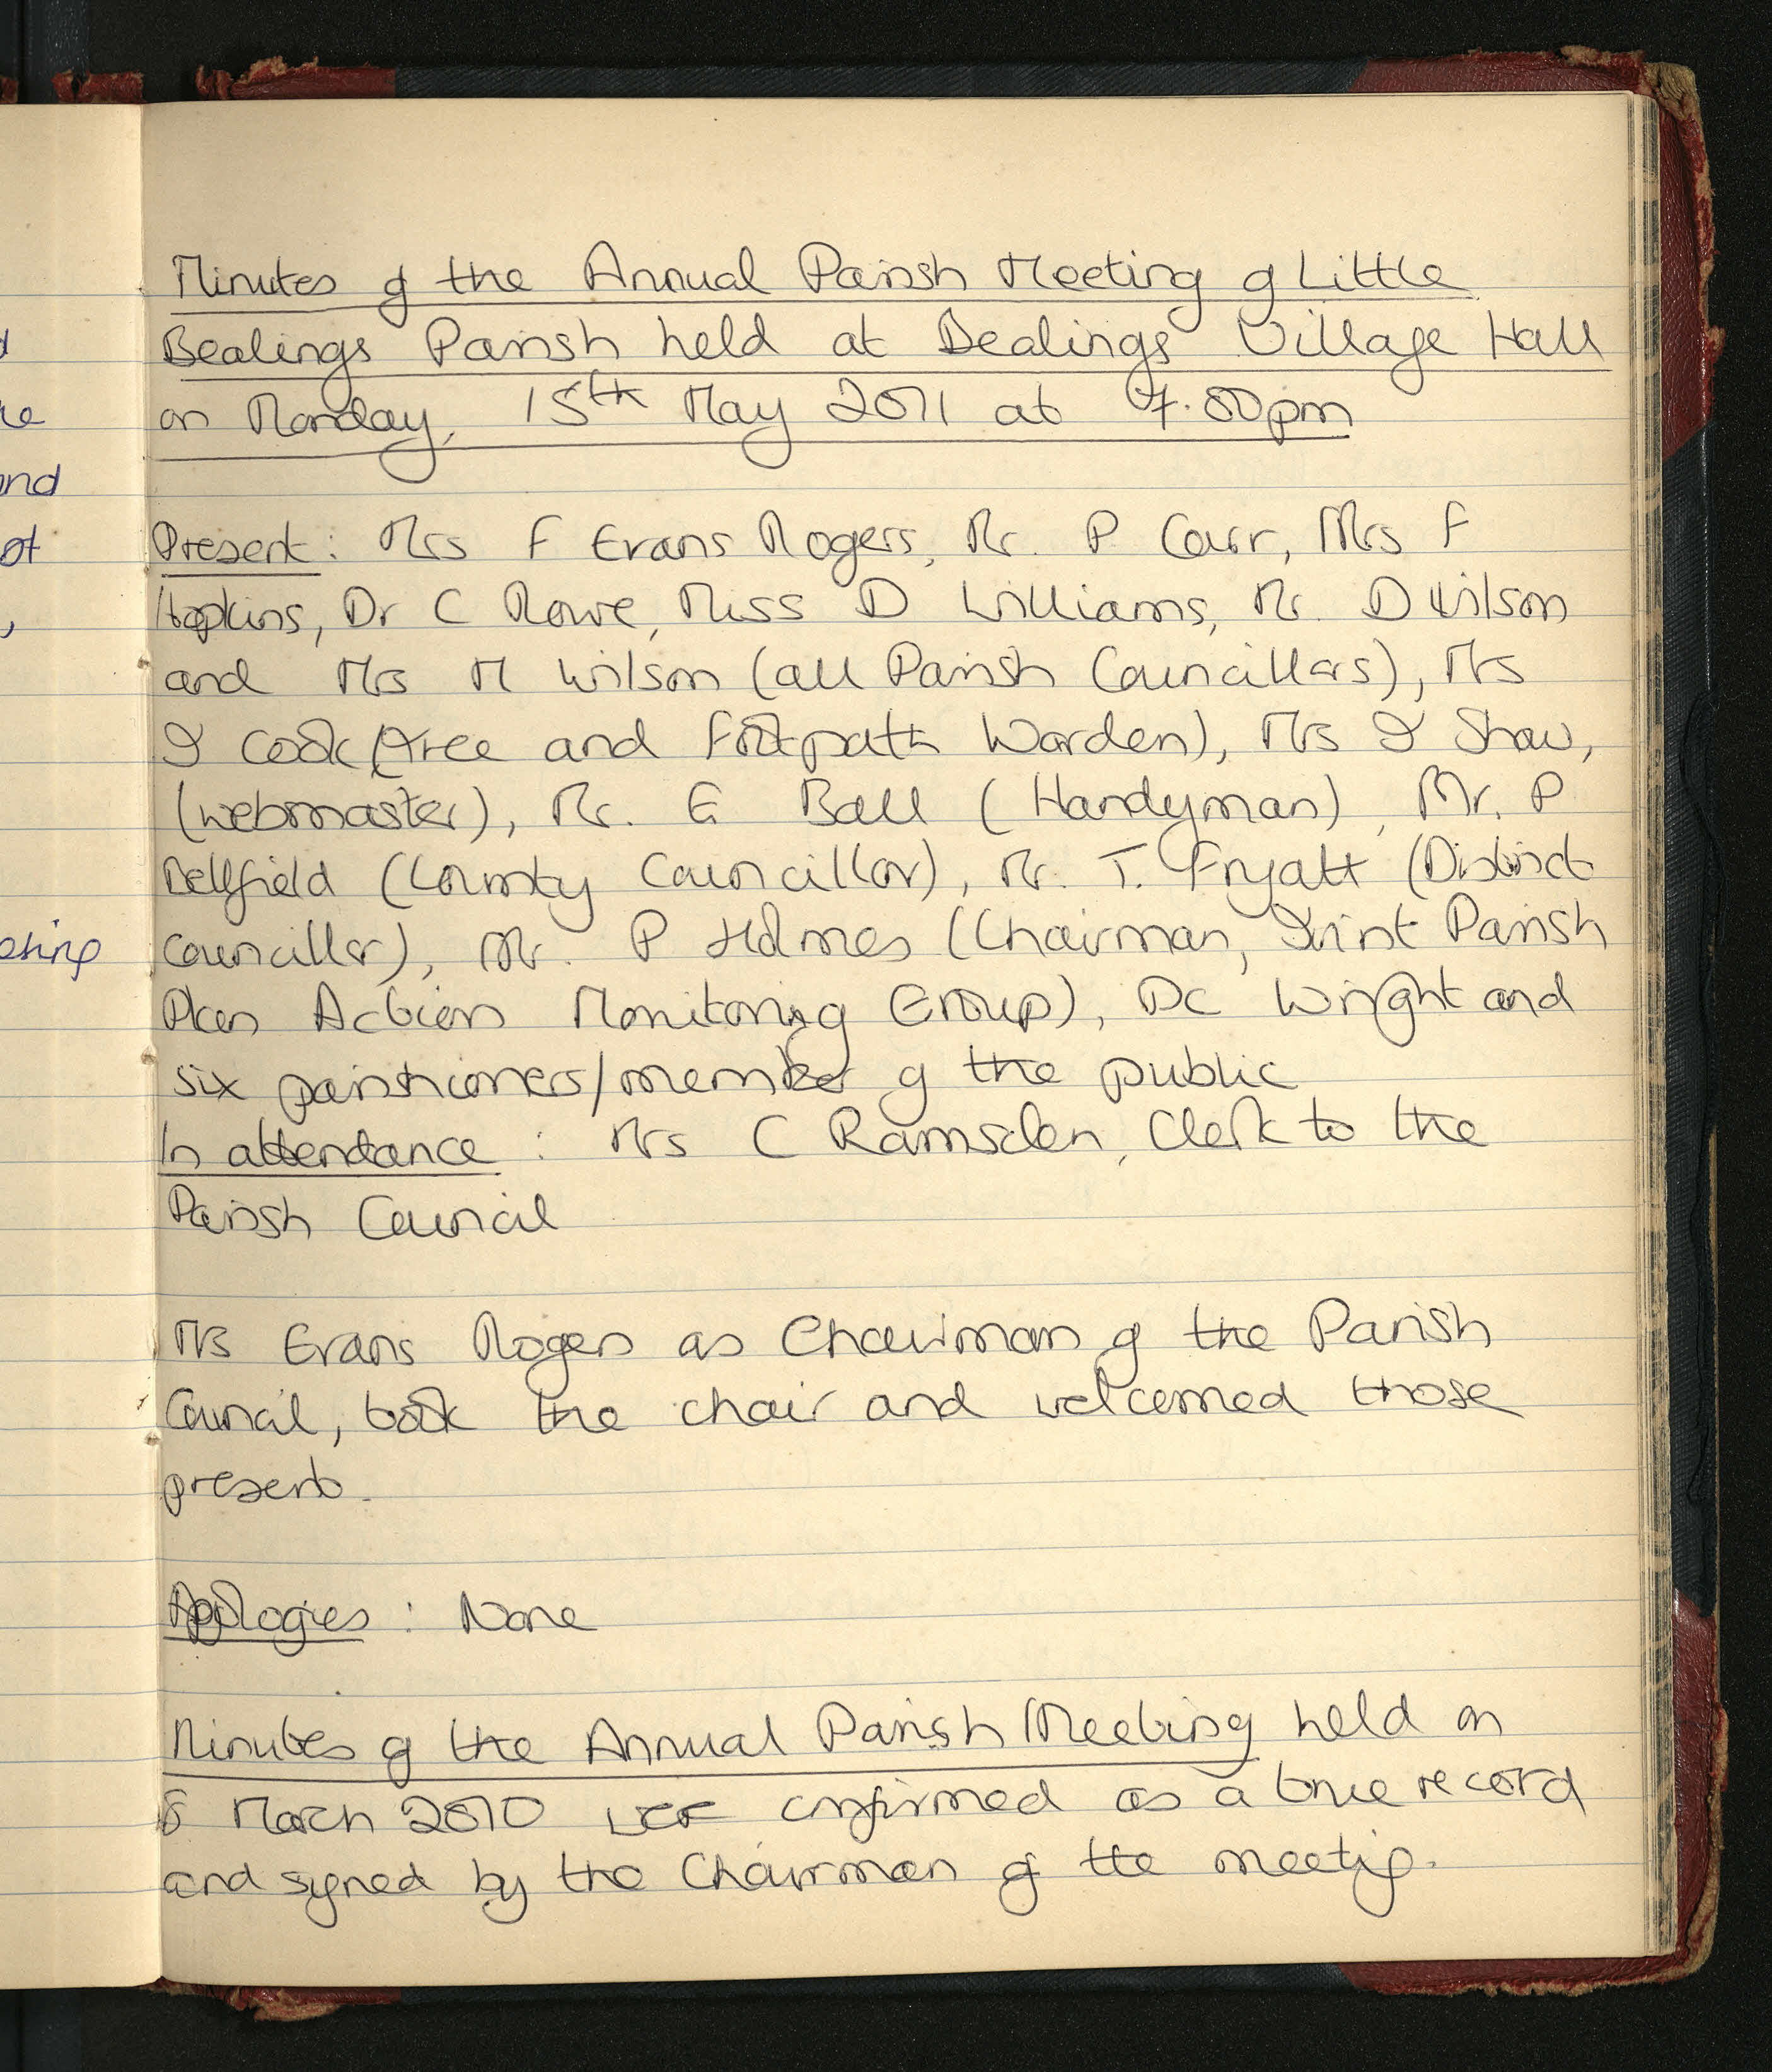 Minutes of the Annual Parish Meeting of Little
Bealings Parish held at Bealings Village Hall
on Monday, 15th May 2011 at 7.00pm
Present: Mrs F Evans Rogers, Mr. P Carr, Mrs F
Hopkins, Dr C Rowe, Miss D Williams, Mr. D Wilson
and Mrs M Wilson (all Parish Councillors), Mrs
J Cook (tree and Footpath Warden), Mrs J Shaw,
(webmaster), Mr. G Ball (Handyman), Mr. P
Bellfield (County Councillor), Mr. T. Fryatt (District
Councillor), Mr. P Holmes (Chairman, Joint Parish
Plan Action Monitoring Group), DC Wright and
six parishioners/member of the public
In attendance : Mrs C Ramsden, Clerk to the
Parish Council
Mrs Evans Rogers as Chairman of the Parish
Council, took the chair and welcomed those
present.
Apologies : None
Minutes of the Annual Parish Meeting held on
8 March 2010 were confirmed as a true record
and signed by the Chairman of the meeting.